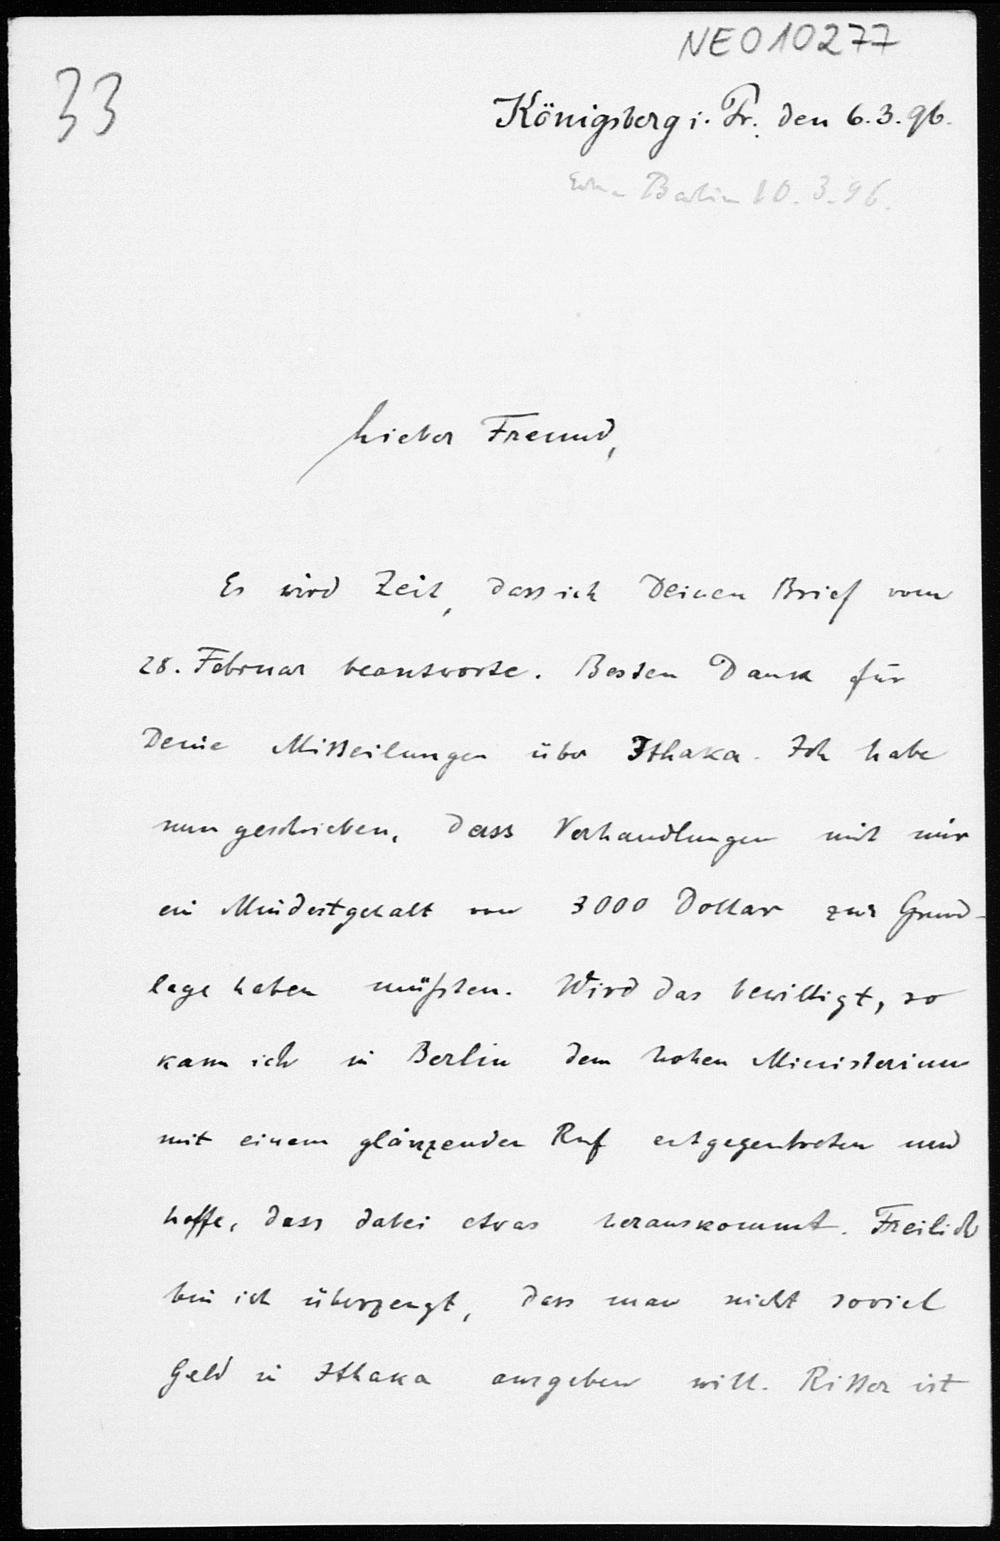 NE010277
33
Königsberg i. Pr. den 6.3.96.
Berlin 10.3.96.
Lieber Freund,
Es wird Zeit, dass ich Deinen Brief vom
28. Februar beantworte. Besten Dank für
Deine Mitteilungen über Ithaka. Ich habe
nun geschrieben, dass Verhandlungen mit mir
ein Mindestgehalt von 3000 Dollar zur Grund-
lage haben müßten. Wird das bewilligt, so
kann ich in Berlin dem hohen Ministerium
mit einem glänzenden Ruf entgegentreten und
hoffe, dass dabei etwas herauskommt. Freilich
bin ich überzeugt, dass man nicht soviel
Geld in Ithaka ausgeben will. Ritter ist